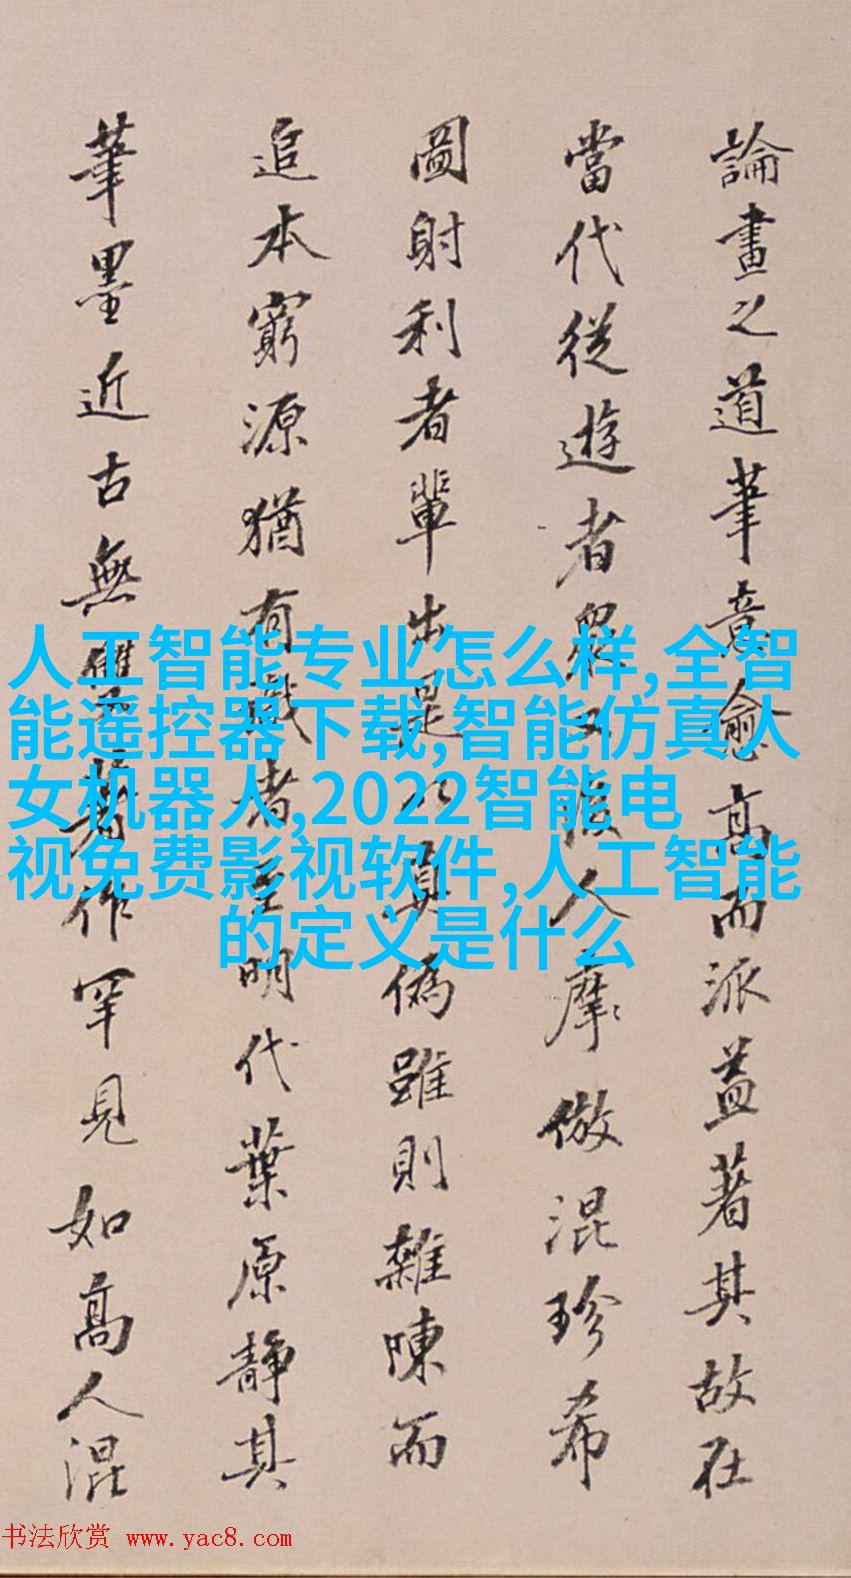 論畫之道筆意愈高而派益著其故在
當代從遊者衆又後人摩倣混珍希
圖射利者輩出是以真偽雖則雜陳而
追本窮源猶有識者至明代葉原靜其
筆墨近古無著作罕見如高人混
人工智能专业怎么样,全智
能遥控器下载,智能仿真人
女机器人,2022智能电
视免费影视软件,人工智能
的定义是什么
书法欣赏 www.yac8.com